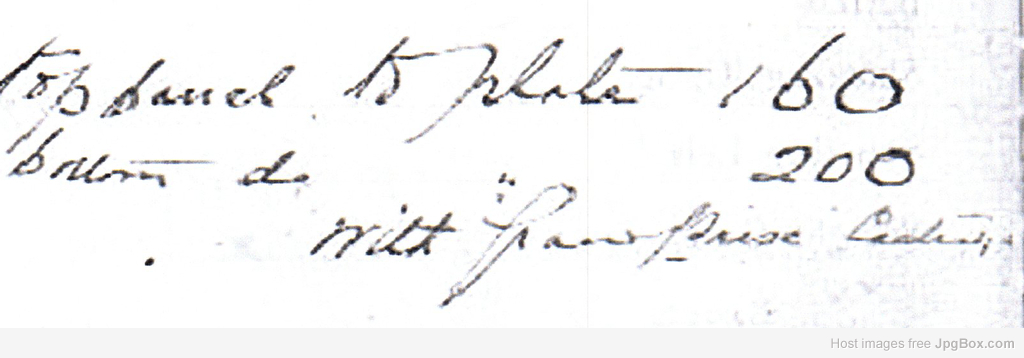 top panel to plate 160
bottom do " 200
with
Host images free JpgBox.com